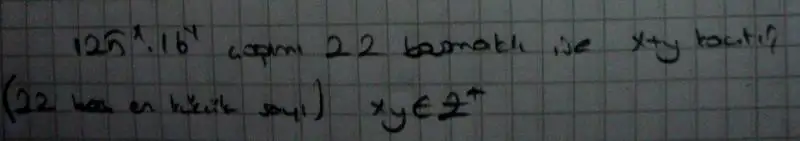 125ˣ.16ʸ çarpımı 22 basamaklı ise x+y kaçtır?
(22 bas en küçük sayı) x,y∈Z⁺